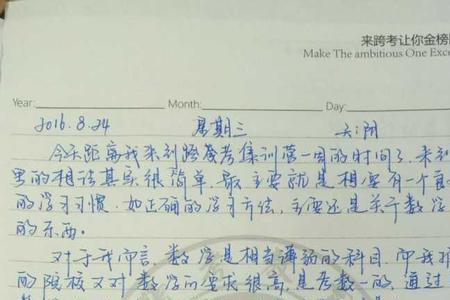 来跨考让你金榜
Make The ambitious One Exce
Year: Month: Day:
2016.8.24 星期三 天:阴
今天距离我来到跨考考集训营一周的时间了,来到
里的想法其实很简单,最主要就是想要有一个良
的学习习惯,如正确的学习方法,主要还是关于数学
的东西。
对于我而言,数学是相当薄弱的科目,而我报
的院校又对数学的要求很高,是考数一的,通过